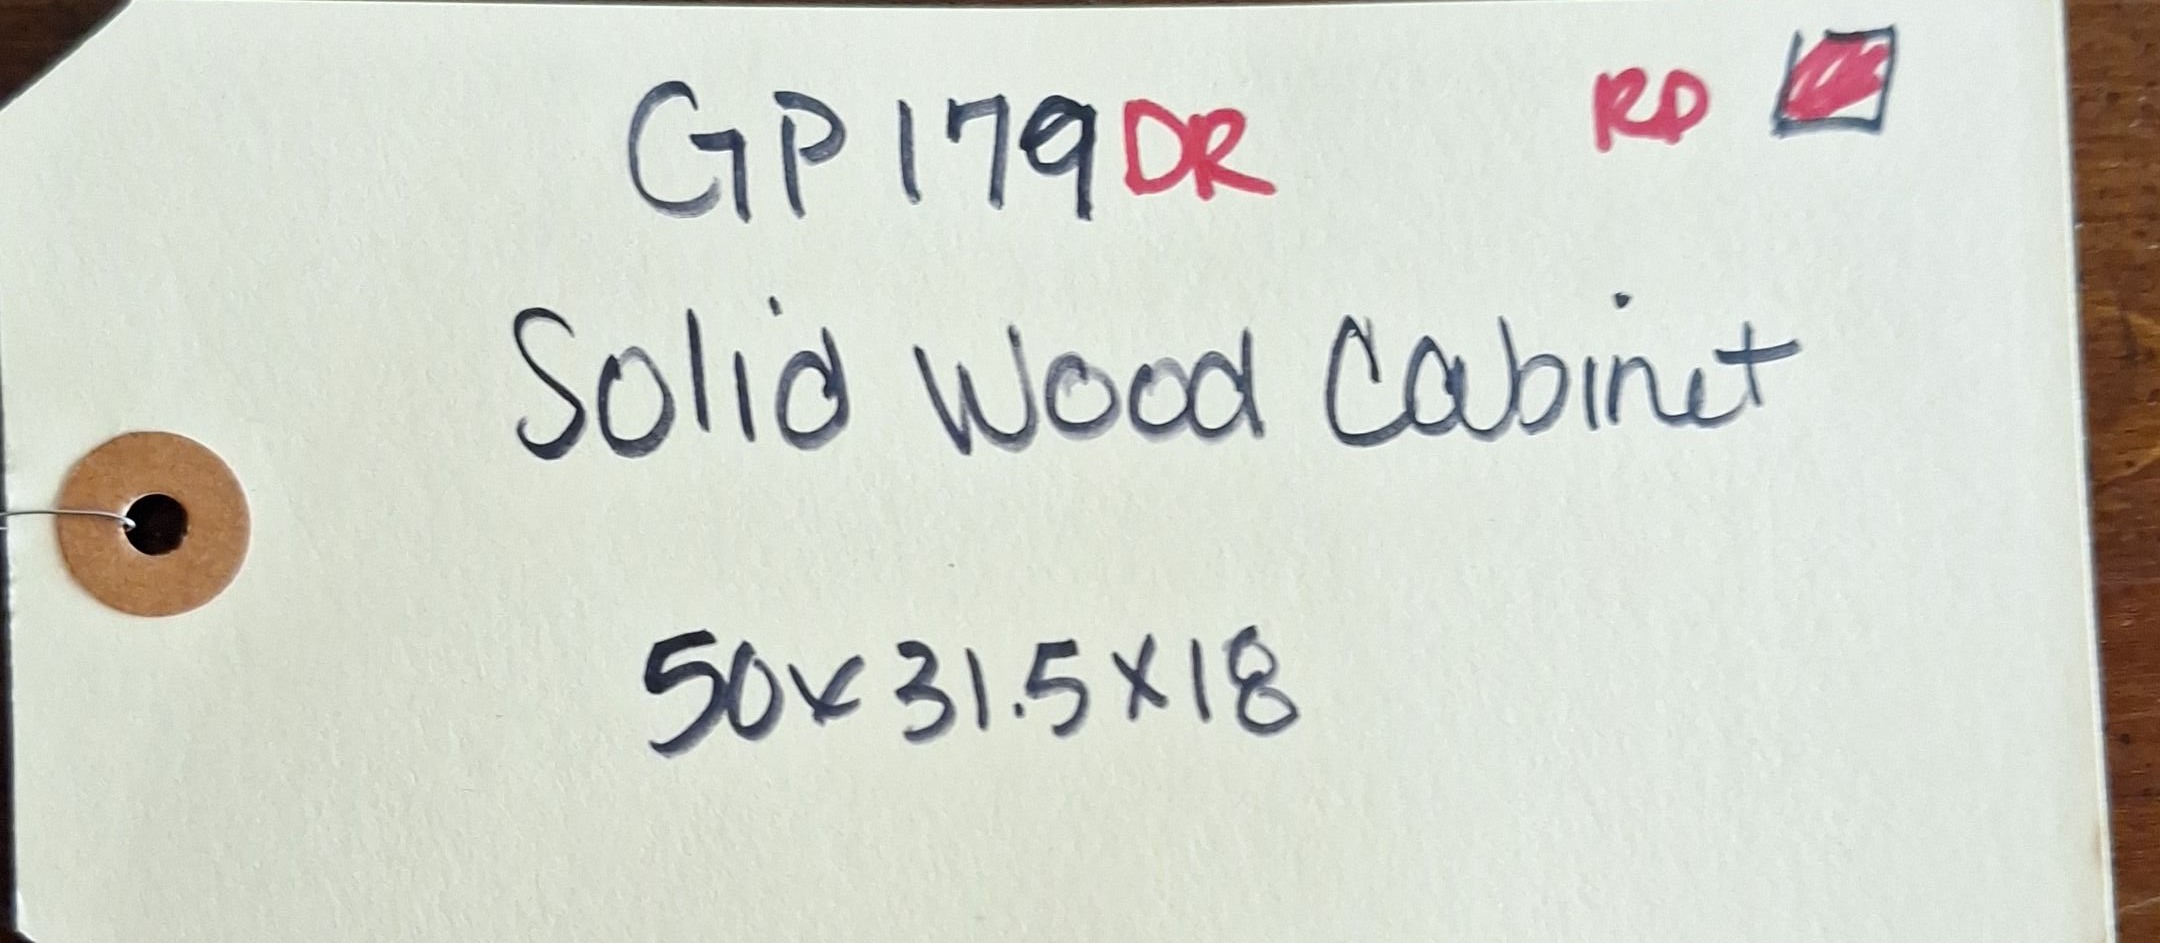 GP179DR RD
Solid Wood Cabinet
50x31.5x18